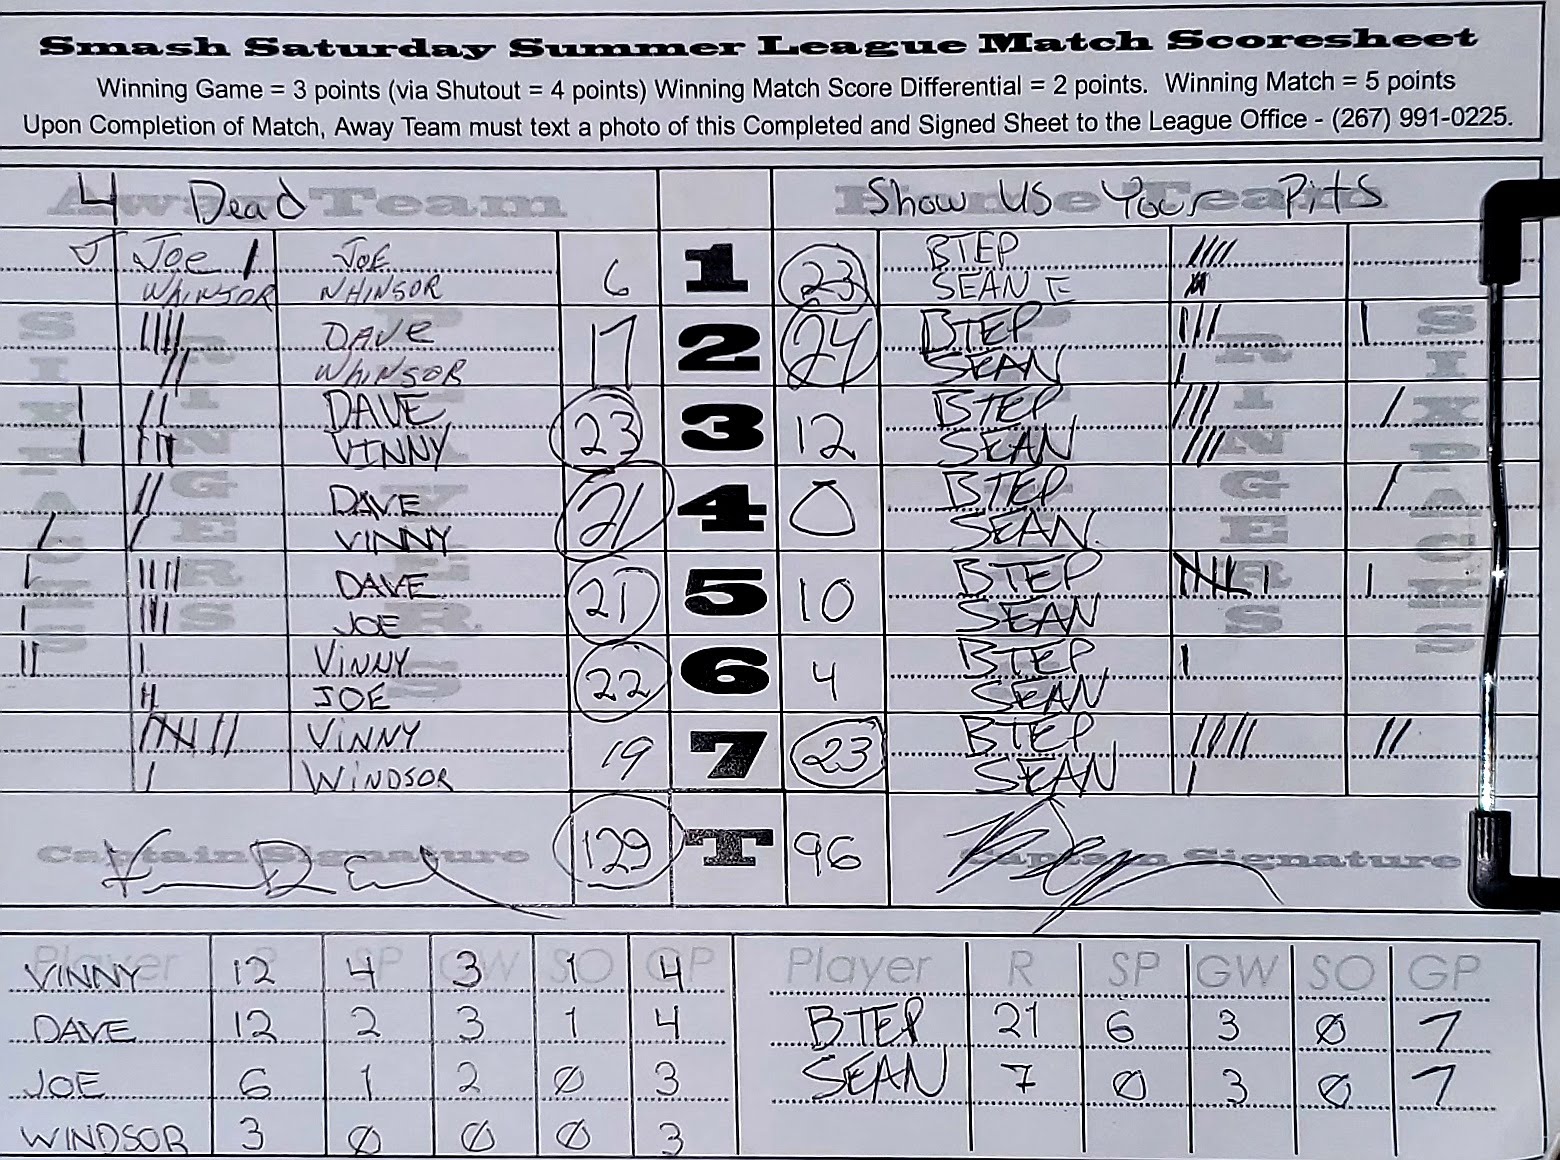 Smash Saturday Summer League Match Scoresheet
Winning Game = 3 points (via Shutout = 4 points) Winning Match Score Differential = 2 points. Winning Match = 5 points
Upon Completion of Match, Away Team must text a photo of this Completed and Signed Sheet to the League Office - (267) 991-0225.
Away Team 4 Dead Home Team Show Us Your Pits
Joe JOE 6 1 23 BTEP
WHINSOR WHINSOR SEAN E
DAVE 17 2 24 BTEP
WHINSOR SEAN
DAVE 23 3 12 BTEP
VINNY SEAN
DAVE 21 4 0 BTEP
VINNY SEAN.
DAVE 21 5 10 BTEP
JOE SEAN
VINNY 22 6 4 BTEP
JOE SEAN
VINNY 19 7 23 BTEP
WINDSOR SEAN
SIXPACKS RINGERS PLAYERS PLAYERS RINGERS SIXPACKS
Captain Signature 129 T 96 Captain Signature
Player R SP GW SO GP Player R SP GW SO GP
VINNY 12 4 3 1 4
DAVE 12 2 3 1 4 BTEP 21 6 3 Ø 7
JOE 6 1 2 Ø 3 SEAN 7 Ø 3 Ø 7
WINDSOR 3 Ø Ø Ø 3